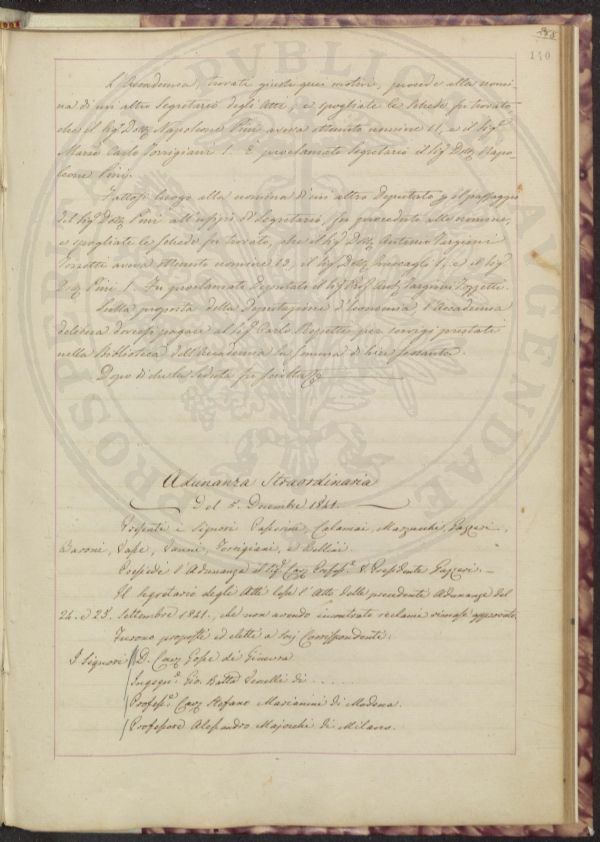 148
110
L'Accademia, trovati giusti quei motivi, procede alla nomi-
na di un altro Segretario degli Atti, e spogliate le schede fu trovato
che il Sigr. Dottr. Napoleone Pini aveva ottenuto nomine 11, e il Sigr.
Mario Carlo Torrigiani 1. È proclamato Segretario il Sigr. Dottr. Napo-
leone Pini.
Fattosi luogo alla nomina di un altro Deputato p. il passaggio
del Sigr. Dottr. Pini all'uffizio di Segretario, fu proceduto alle nomine,
e spogliate le schede fu trovato, che il Sigr. Dottr. Antonio Targioni
Tozzetti aveva ottenuto nomine 12, il Sigr. Dottr. 1, e il Sigr.
Dottr. Pini 1. Fu proclamato Deputato il Sigr. Targioni Tozzetti.
Sulla proposta della Deputazione d'Economia, l'Accademia
delibera doversi pagare al Sigr. Carlo per servigi prestati
nella Biblioteca dell'Accademia la somma di lire sessanta.
Dopo di che la seduta fu sciolta
Adunanza Straordinaria
Del 5. Decembre 1841.
Presenti i Signori Passerini, Calamai, Mazzuchi, Gazzeri,
Baroni, Pape, Vanni, Torrigiani, e Bellini.
Presiede l'Adunanza il Sigr. Cavr. Profesr. V. Presidente Gazzeri.
Il Segretario degli Atti lesse l'Atto delle precedenti Adunanze del
24. e 28. Settembre 1841. che non avendo incontrato reclami rimase approvato.
Furono proposti ed eletti a Soci Corrispondenti:
I Signori D. Cav. Gosse di Ginevra
Ingegnr. Gio. Batta di . . . . .
Profesr. Cavr. Stefano Marianini di Modena.
Professore Alessandro Majocchi di Milano.
PROSPERITATI PVBLICAE AVGENDAE